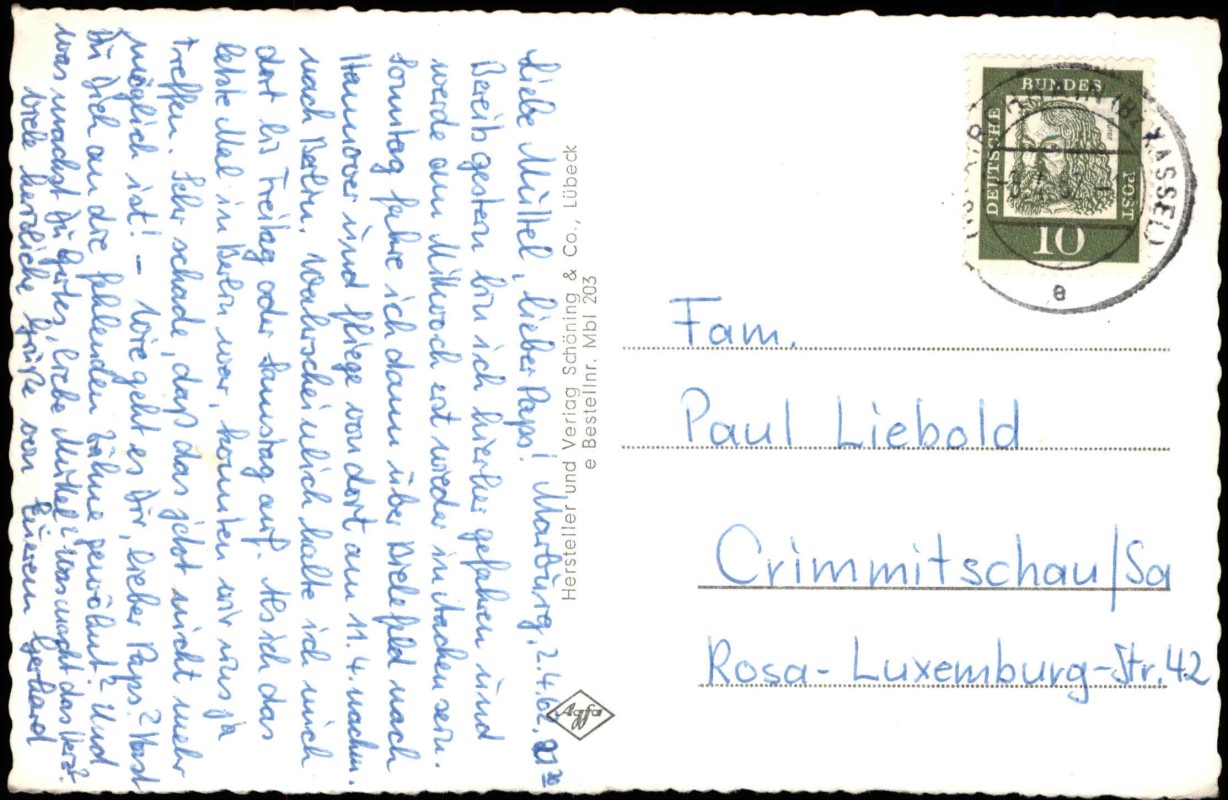 Liebe Muttel, lieber Paps! Marburg, 2.4.62.
Bereits gestern bin ich hierher gefahren und
werde am Mittwoch erst wieder in Aachen sein.
Sonntag fahre ich dann über Bielefeld nach
Hannover und fliege von dort am 11.4. nachm.
nach Berlin. Wahrscheinlich halte ich mich
dort bis Freitag oder Samstag auf. Als ich das
letzte Mal in Berlin war, konnten wir uns ja
treffen. Sehr schade, daß das jetzt nicht mehr
möglich ist! – Wie geht es Dir, lieber Paps? Hast
Du Dich an die fehlenden Zähne gewöhnt? Und
was machst Du Gutes, liebe Muttel? Was macht das Herz?
Viele herzliche Grüße von Euerem Gerhard
Hersteller und Verlag Schöning & Co., Lübeck
e Bestellnr. Mbl 203
Agfa
DEUTSCHE
BUNDES
POST
10
KASSEL)
a
Fam.
Paul Liebold
Crimmitschau/Sa
Rosa-Luxemburg-Str. 42